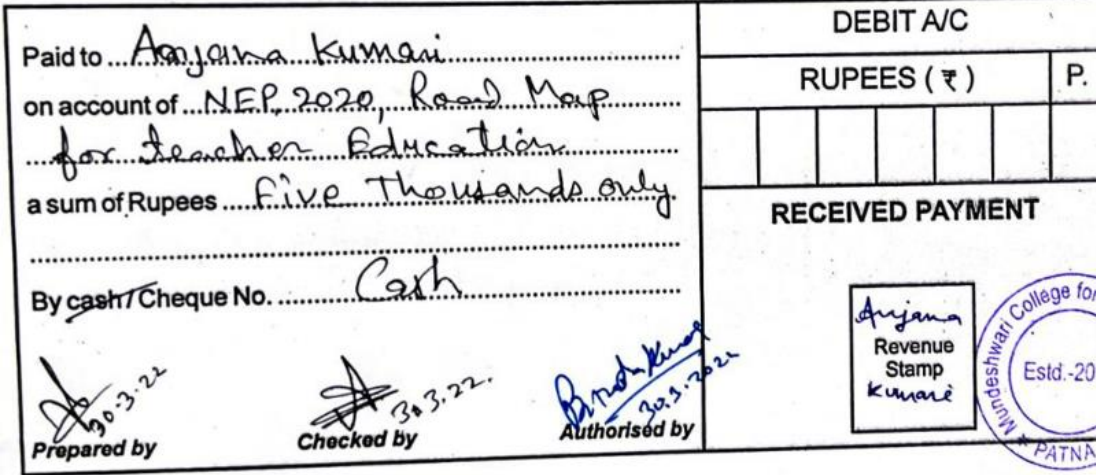 Paid to Anjana Kumari
on account of NEP, 2020, Road Map
for teacher Education
a sum of Rupees Five Thousands only
By cash / Cheque No. Cash
30.3.22
Prepared by
30.3.22.
Checked by
30.3.2022
Authorised by
DEBIT A/C
RUPEES ( ₹ ) P.
RECEIVED PAYMENT
Anjana
Revenue
Stamp
Kumari
Mundeshwari College for
Estd.-20
PATNA